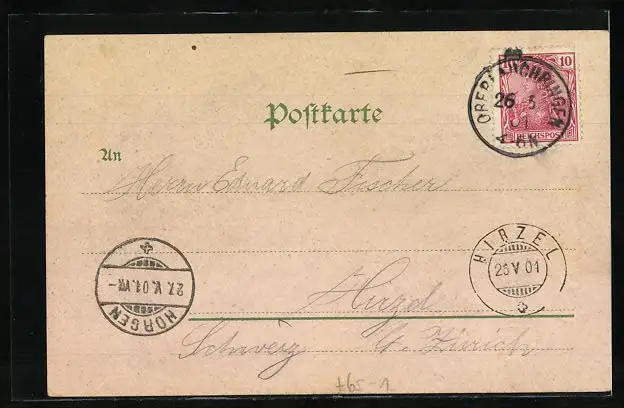 10
REICHSPOST
OBERLAUCHRINGEN
26 5
01
4-8N.
Postkarte
An
Herrn Eduard Fischer
HIRZEL
26 V 01
HORGEN
27. V. 01. VII-
Hirzel
Schweiz Ct. Zürich